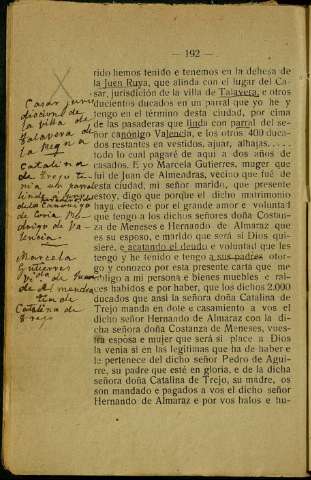 — 192 —
rido hemos tenido e tenemos en la dehesa de
la Juen Ruya, que alinda con el lugar del Ca-
sar, jurisdición de la villa de Talavera, e otros
ducientos ducados en un parral que yo he y
tengo en el término desta ciudad, por cima
de las pasaderas que linda con parral del se-
ñor canónigo Valencia, e los otros 400 duca-
dos restantes en vestidos, ajuar, alhajas.....
todo lo cual pagaré de aqui a dos años de
casados. E yo Marcela Gutierres, muger que
fui de Juan de Almeadras, vecino que fué de
esta ciudad, mi señor marido, que presente
estoy, digo que porque el dicho matrimonio
haya efecto e por el grande amor e voluntad
que tengo a los dichos señores doña Costan-
za de Meneses e Hernando de Almaraz que
es su esposo, e marido que será si Dios qui-
siere, e acatando el deudo e voluntad que les
tengo y he tenido e tengo a sus padres otor-
go y conozco por esta presente carta que me
obligo a mi persona e bienes muebles e rai-
ces habidos e por haber, que los dichos 2.000
ducados que ansi la señora doña Catalina de
Trejo manda en dote e casamiento a vos el
dicho señor Hernando de Almaraz con la di-
cha señora doña Costanza de Meneses, vues-
tra esposa e muger que será si place a Dios
la venia si en las legitimas que ha de haber e
le pertenece del dicho señor Pedro de Agui-
rre, su padre que esté en gloria, e de la dicha
señora doña Catalina de Trejo, su madre, os
son mandado e pagados a vos el dicho señor
Hernando de Almaraz e por vos halos e hu-
Casar juris
dicion de
la villa de
Talavera de
la Reyna
Catalina
de Trejo te
nia un parral
linde
del Canonigo
de Coria
Valencia
Marcela
Gutierres
de Juan
de Almendra
de
Catalina de
Trejo